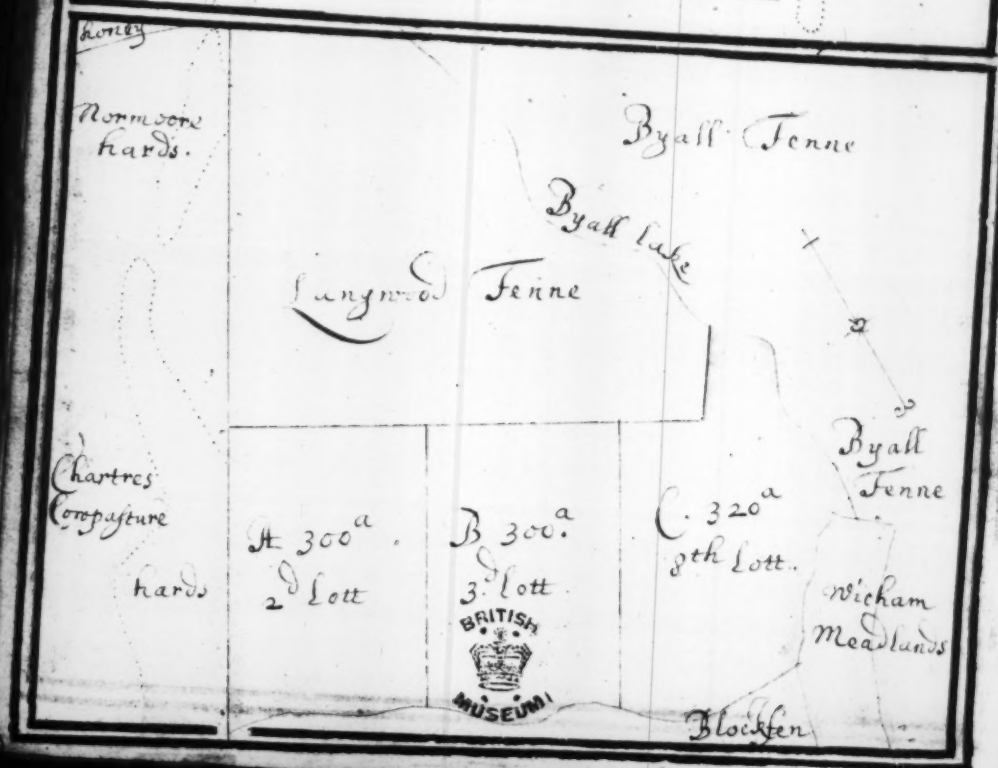 honey
Normoore
hards.
Byall Fenne
Byall lake
Langwood Fenne
Byall
Fenne
Chartres
Cowpasture
hards
A 300a
2d Lott
B 300.a
3.d lott
C. 320a
8th Lott.
Wicham
Meadlands
BRITISH
MUSEUM
Blockfen